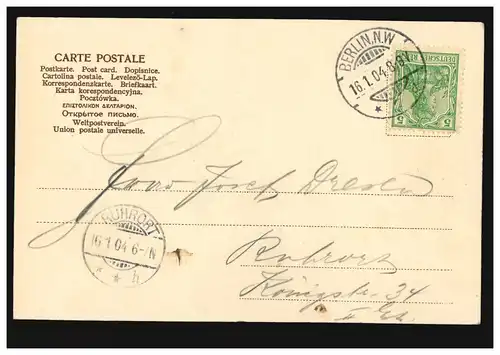 CARTE POSTALE
Postkarte. Post card. Dopisnice.
Cartolina postale. Levelező-Lap.
Korrespondenzkarte. Briefkaart.
Karta korespondencyjna.
Pocztówka.
ΕΠΙΣΤΟΛΙΚΟΝ ΔΕΛΤΑΡΙΟΝ.
Открытое письмо.
Weltpostverein.
Union postale universelle.
BERLIN, N.W.
16.1.04.8-9V
DEUTSCHES REICH
5 5
Josef
Ruhrort
Königstr. 34
II
RUHRORT
16 1 04 6-7N
* * h